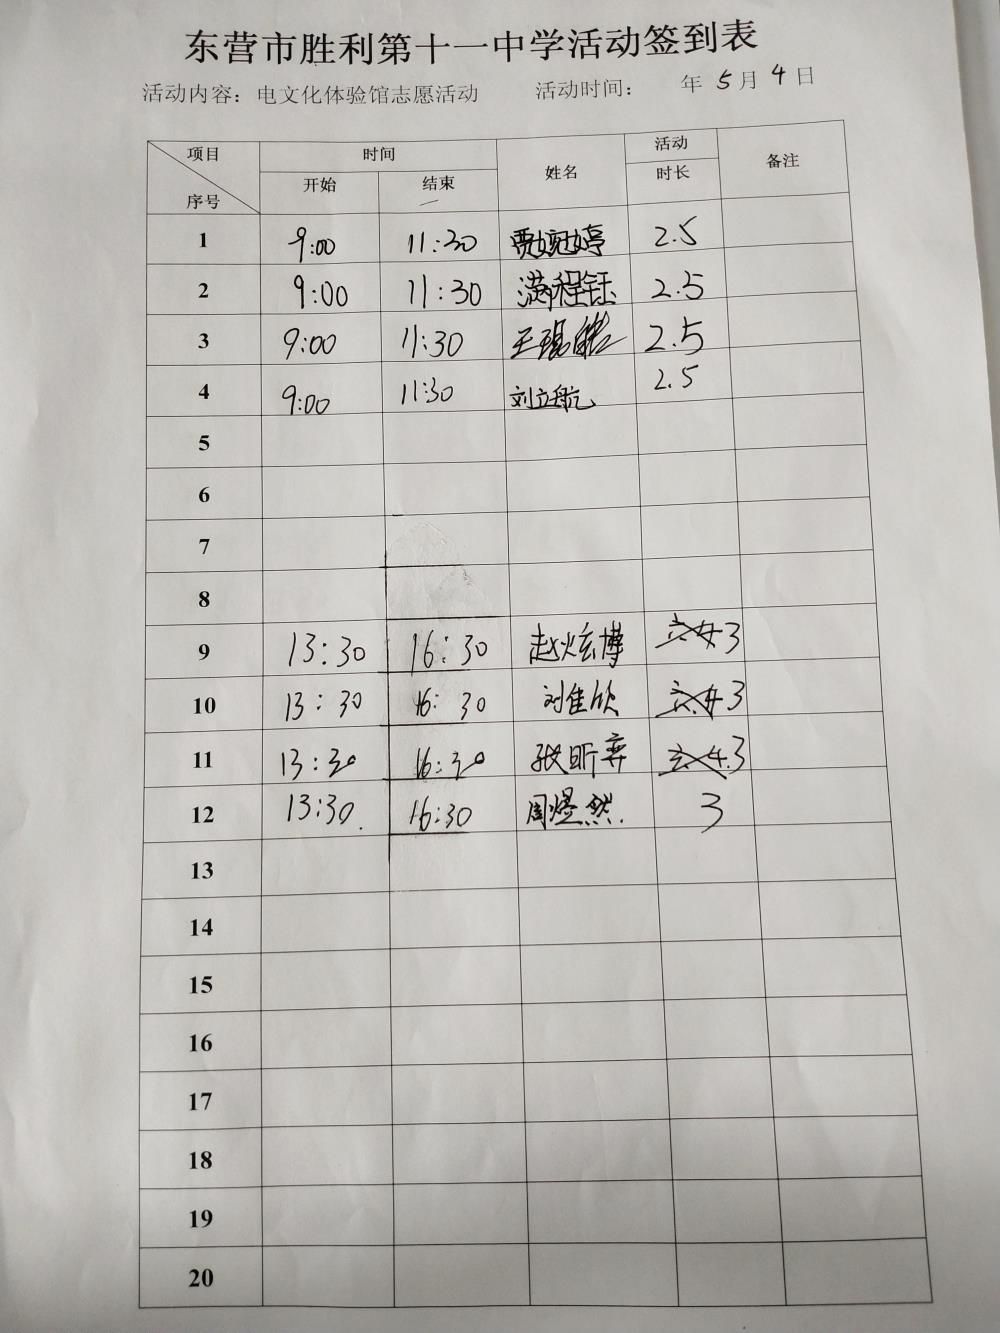 东营市胜利第十一中学活动签到表
活动内容：电文化体验馆志愿活动 活动时间： 年 5 月 4 日
项目 时间 姓名 活动 备注
序号 开始 结束 时长
1 9:00 11:30 贾婉婷 2.5
2 9:00 11:30 满程钰 2.5
3 9:00 11:30 王 2.5
4 9:00 11:30 刘立航 2.5
5
6
7
8
9 13:30 16:30 赵炫博 3
10 13:30 16:30 刘佳欣 3
11 13:30 16:30 张昕弈 3
12 13:30 16:30 周煜然 3
13
14
15
16
17
18
19
20